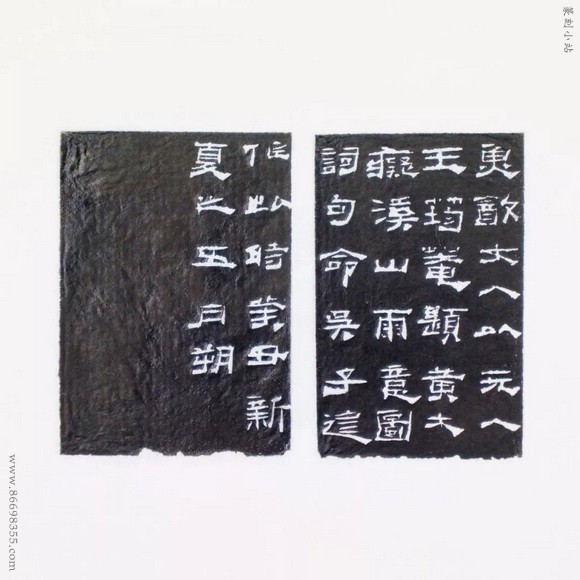 大人以元人
王筠菴題黄大
癡溪山雨意圖
詞句命吳子建
作此時癸丑新
夏之五月朔
篆刻小站
www.86698355.com